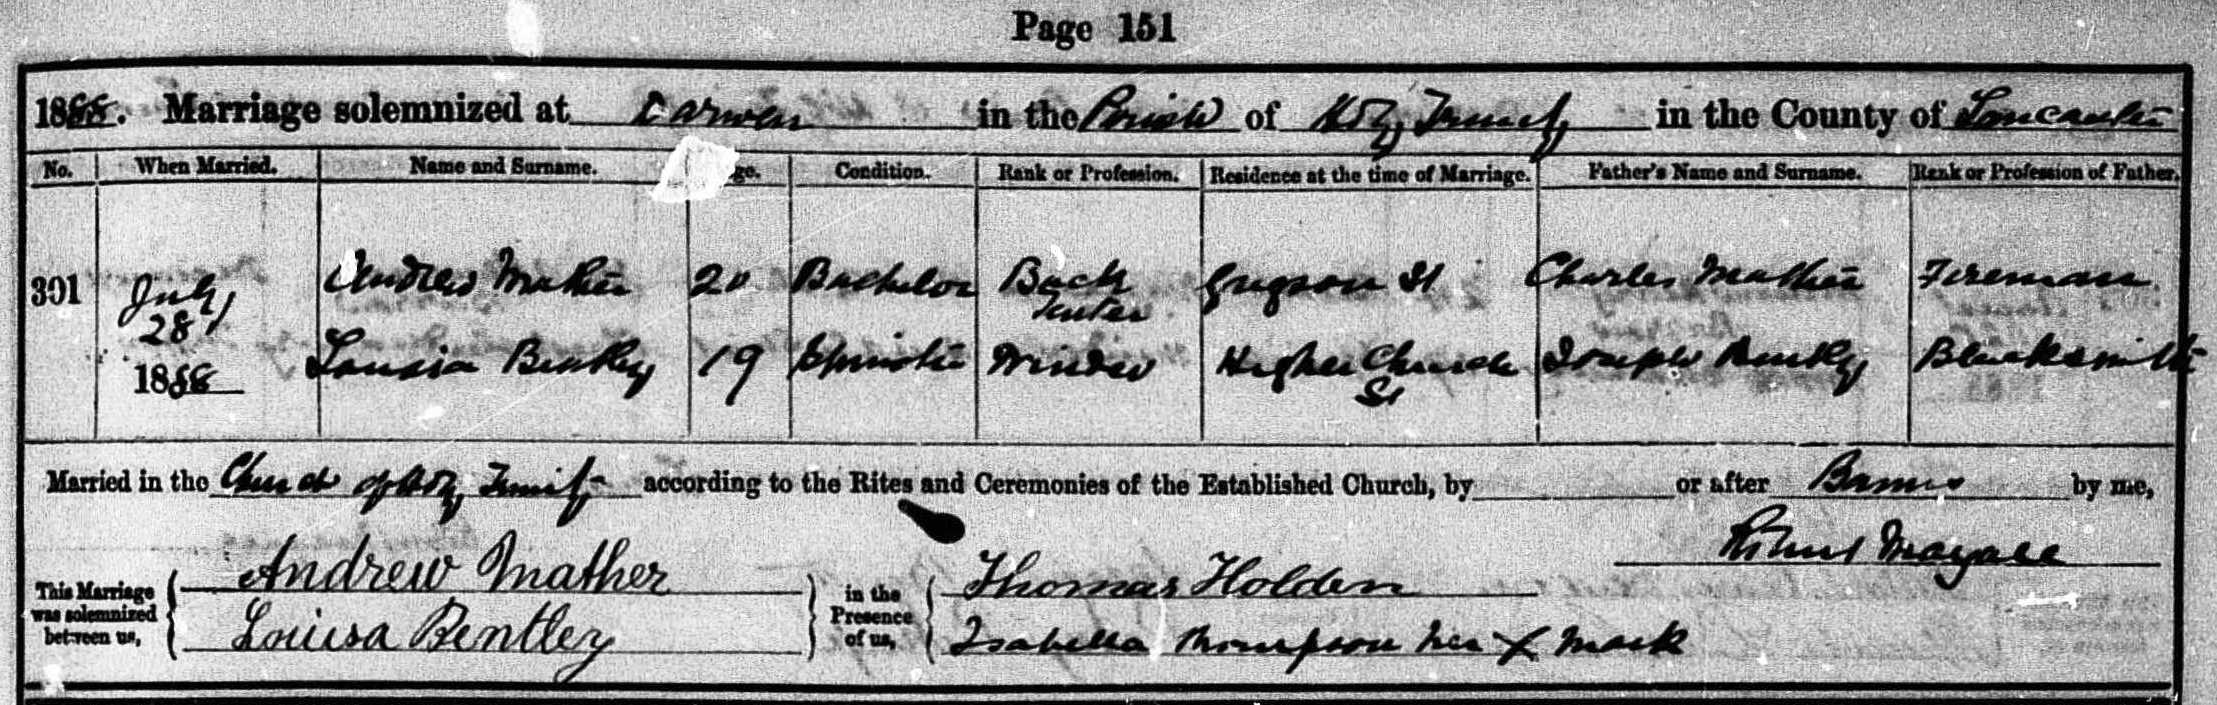 Page 151
1888. Marriage solemnized at Darwen in the Parish of Holy Trinity in the County of Lancaster
No. When Married. Name and Surname. Age. Condition. Rank or Profession. Residence at the time of Marriage. Father's Name and Surname. Rank or Profession of Father.
301 July 28 1888 Andrew Mather 20 Bachelor Back Tenter Gregson St Charles Mather Fireman
Louisa Bentley 19 Spinster Winder Higher Church St Joseph Bentley Blacksmith
Married in the Church of Holy Trinity according to the Rites and Ceremonies of the Established Church, by or after Banns by me,
Robert Mayall
This Marriage was solemnized between us, Andrew Mather in the Presence of us, Thomas Holden
Louisa Bentley Isabella Thompson her X mark